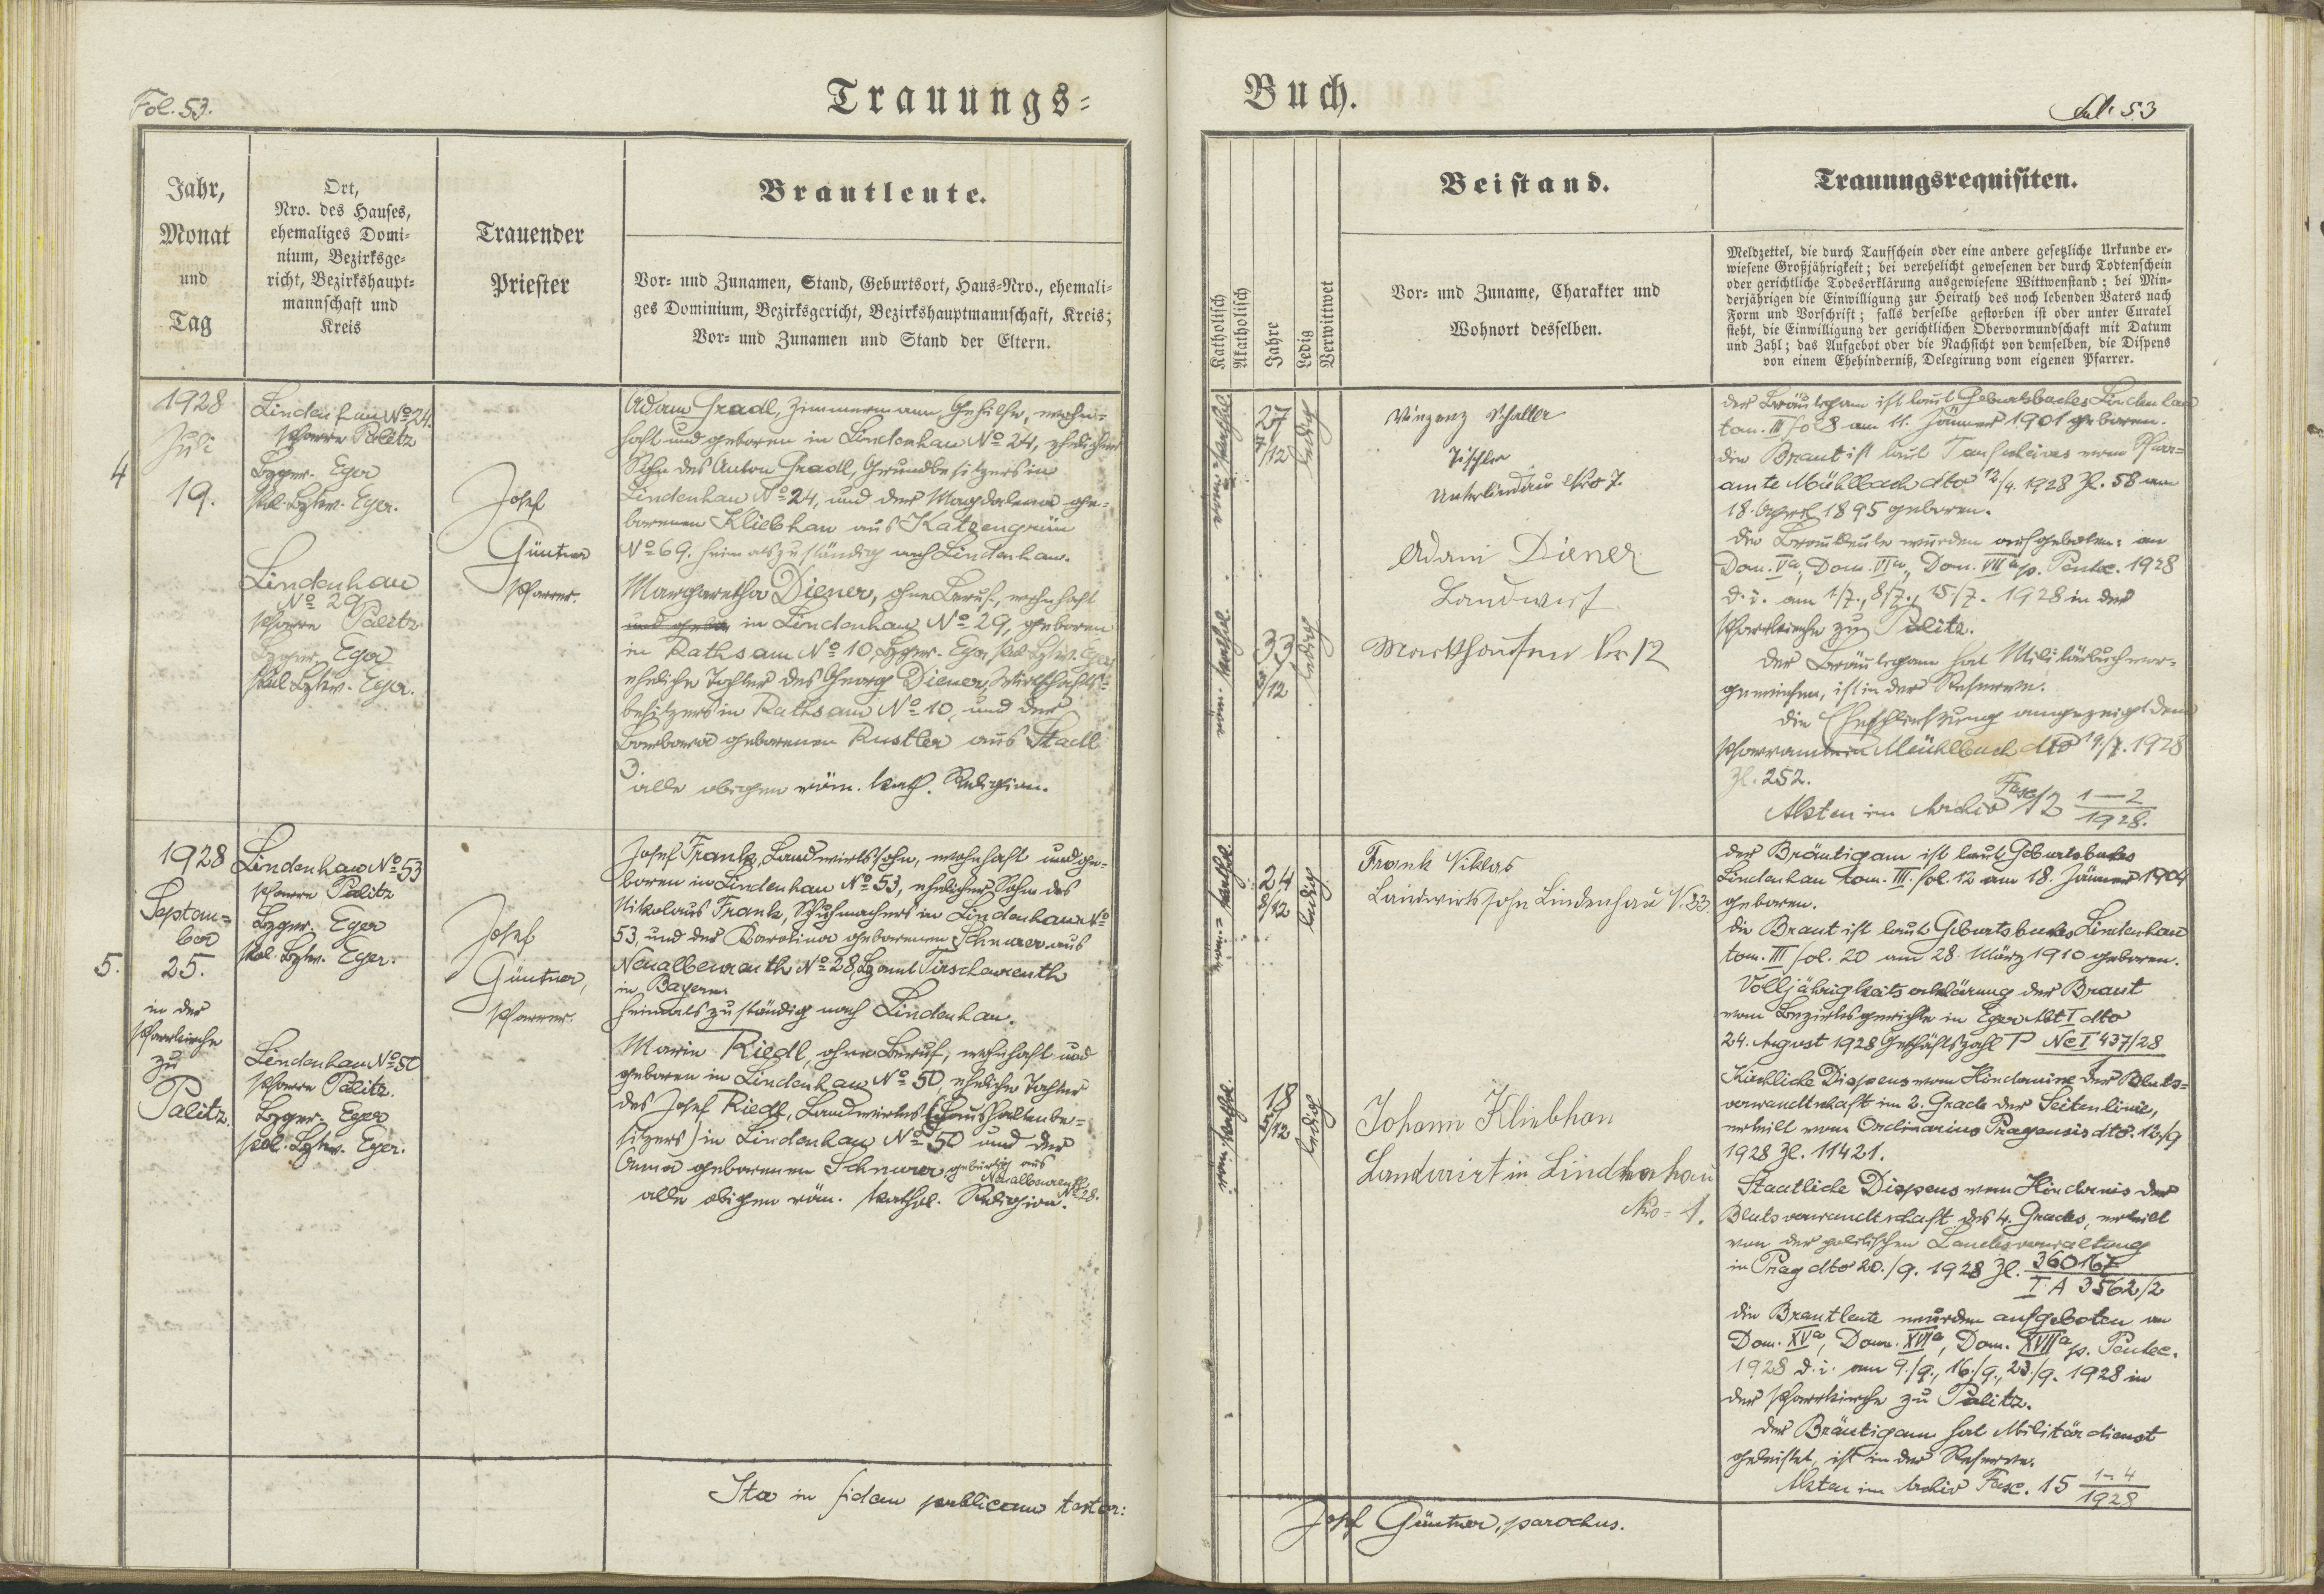 Fol. 53.
Trauungs-
Jahr,
Monat
und
Tag
Ort,
Nro. des Hauses,
ehemaliges Domi-
nium, Bezirksge-
richt, Bezirkshaupt-
mannschaft und
Kreis
Trauender
Priester
Brautleute.
Vor- und Zunamen, Stand, Geburtsort, Haus-Nro., ehemali-
ges Dominium, Bezirksgericht, Bezirkshauptmannschaft, Kreis;
Vor- und Zunamen und Stand der Eltern.
4
1928
Juli
19.
Lindenhau No 24.
Pfarre Palitz
Bzger. Eger
Pol. Bzkv. Eger.
Lindenhau
No 29
Pfarre Palitz
Bzger. Eger
Pol. Bzkv. Eger.
Josef
Güntner
Pfarrer.
Adam Gradl, Zimmermann Gehilfe, wohn-
haft und geboren in Lindenhau No 24, ehelicher
Sohn des Anton Gradl, Grundbesitzers in
Lindenhau No 24, und der Magdalena ge-
borenen Kliebhan aus Katzengrün
No 69. heimatszuständig nach Lindenhau.
Margaretha Diener, ohne Beruf, wohnhaft
und gebo in Lindenhau No 29, geboren
in Rathsam No 10, Bzger. Eger, pol. Bzkv. Eger
eheliche Tochter des Georg Diener, Wirtschafts-
besitzers in Rathsam No 10, und der
Barbara geborenen Rustler aus Stadl
3
alle obigen röm. kath. Religion.
5.
1928
Septem-
ber
25.
in der
Pfarrkirche
zu
Palitz.
Lindenhau No 53
Pfarre Palitz
Bzger. Eger
Pol. Bzkv. Eger.
Lindenhau No 50
Pfarre Palitz.
Bzger. Eger
pol. Bzkv. Eger.
Josef
Güntner,
Pfarrer.
Josef Frank, Landwirtssohn, wohnhaft und ge-
boren in Lindenhau No 53, ehelicher Sohn des
Nikolaus Frank, Schuhmachers in Lindenhau No
53, und der Karolina geborenen Schnurer aus
Neualbenreuth No 28, Bzamt Tirschenreuth
in Bayern.
heimatszuständig nach Lindenhau.
Marie Riedl, ohne Beruf, wohnhaft und
geboren in Lindenhau No 50, eheliche Tochter
des Josef Riedl, Landwirtes (Haushaltenbe-
sitzers) in Lindenhau No 50 und der
Anna geborenen Schnurer gebürtig aus
Neualbenreuth
No 28.
alle obigen röm. kathol. Religion.
Ita in fidem publicam testor:
Buch.
Fol. 53
Katholisch
Akatholisch
Jahre
Ledig
Verwittwet
Beistand.
Vor- und Zuname, Charakter und
Wohnort desselben.
Trauungsrequisiten.
Meldzettel, die durch Taufschein oder eine andere gesetzliche Urkunde er-
wiesene Großjährigkeit; bei verehelicht gewesenen der durch Todtenschein
oder gerichtliche Todeserklärung ausgewiesene Wittwenstand; bei Min-
derjährigen die Einwilligung zur Heirath des noch lebenden Vaters nach
Form und Vorschrift; falls derselbe gestorben ist oder unter Curatel
steht, die Einwilligung der gerichtlichen Obervormundschaft mit Datum
und Zahl; das Aufgebot oder die Nachsicht von demselben, die Dispens
von einem Ehehinderniß, Delegirung vom eigenen Pfarrer.
röm.-kathol.
27
7/12
ledig
röm. kathol.
33
3/12
ledig
Vinzenz Schaller
Tischler
Unterlindau Nro 7.
Adam Diener
Landwirt
Markthausen Nr 12
der Bräutigam ist laut Geburtsbuches Lindenhau
tom. III fol 8 am 11. Jänner 1901 geboren.
die Braut ist laut Taufscheines vom Pfarr-
amte Mühlbach dto 12/4. 1928 Zl. 58 am
18. April 1895 geboren.
die Brautleute wurden aufgeboten: am
Dom. Va, Dom. VIa, Dom. VIIa p. Pentec. 1928
d. i. am 1/7., 8/7., 15/7. 1928 in der
Pfarrkirche zu Palitz.
der Bräutigam hat Militärbuch vor-
gewiesen, ist in der Reserve.
die Eheschließung angezeigt dem
Pfarramte in Mühlbach dto 19/7. 1928
Zl. 252.
Akten im Archiv Fasc. 12 1-2/1928.
röm.-kathol.
24
8/12
ledig
röm. kathol.
18
5/12
ledig
Frank Niklas
Landwirtssohn Lindenhau N. 33
Johann Kliebhan
Landwirt in Lindenhau
Nro - 1.
der Bräutigam ist laut Geburtsbuches
Lindenhau tom. III. fol. 12 am 18. Jänner 1904
geboren.
die Braut ist laut Geburtsbuches Lindenhau
tom. III fol. 20 am 28. März 1910 geboren.
Volljährigkeitserklärung der Braut
vom Bezirksgerichte in Eger Abt I dto
24. August 1928 Geschäftszahl P Nc I 437/28
Kirchliche Dispens vom Hindernisse der Bluts-
verwandtschaft im 2. Grade der Seitenlinie,
erteilt vom Ordinarius Pragensis dto. 12./9
1928 Zl. 11421.
Staatliche Dispens vom Hindernis der
Blutsverwandtschaft des 4. Grades, erteilt
von der politischen Landesverwaltung
in Prag dto 20./9. 1928 Zl. 360167
I A 3562/2
die Brautleute wurden aufgeboten am
Dom. XVa, Dom. XVIa, Dom. XVIIa p. Pentec.
1928 d. i. am 9./9., 16./9., 23./9. 1928 in
der Pfarrkirche zu Palitz.
der Bräutigam hat Militärdienst
geleistet, ist in der Reserve.
Akten im Archiv Fasc. 15 1-4/1928
Josef Güntner, parochus.